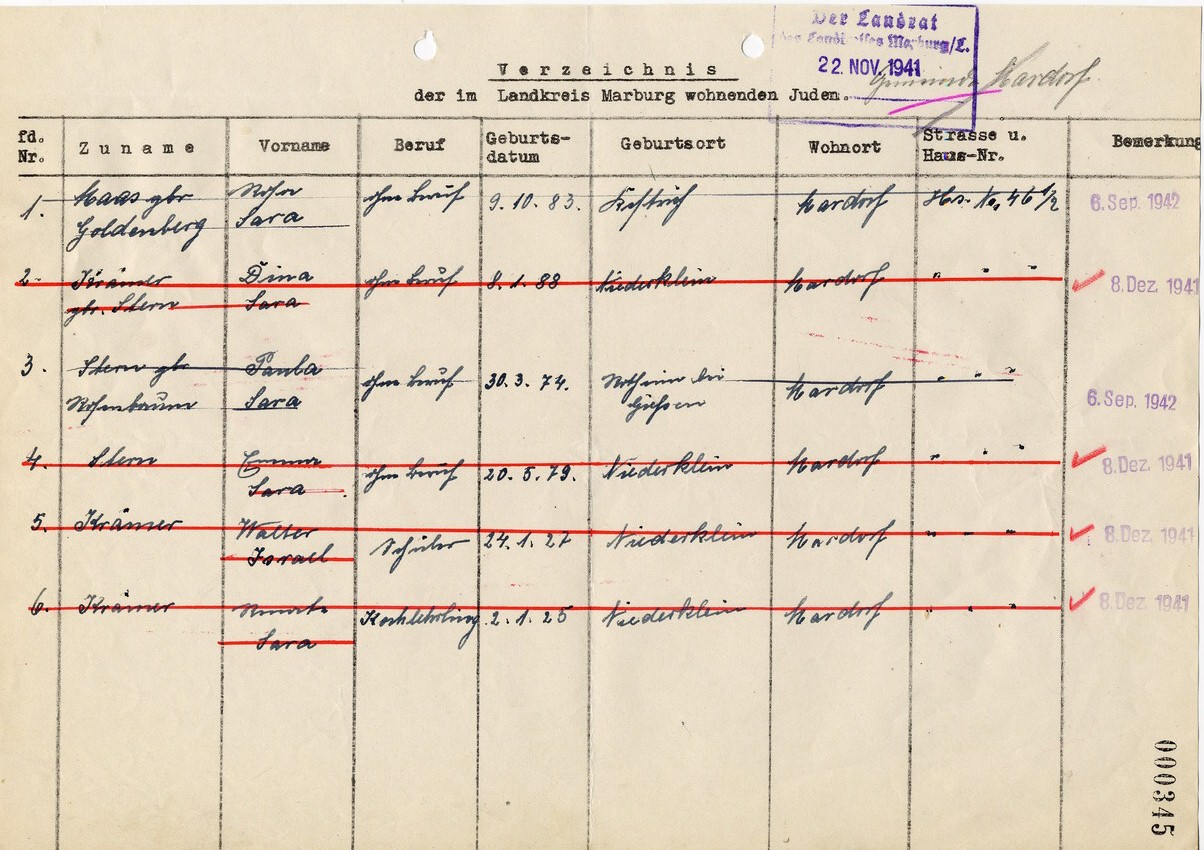 Der Landrat
des Landkreises Marburg/L.
22. NOV. 1941
Verzeichnis
Gemeinde Mardorf
der im Landkreis Marburg wohnenden Juden.
fd. Nr. Zuname Vorname Beruf Geburts-datum Geburtsort Wohnort Strasse u. Haus-Nr. Bemerkung
1. Maas gbr Rosa ohne Beruf 9.10.83. Mardorf Hs. No. 46 1/2 6. Sep. 1942
Goldenberg Sara
2. Krämer Dina ohne Beruf 8.1.88 Niederklein Mardorf " " " 8. Dez. 1941
gbr. Stern Sara
3. Stern gbr Paula ohne Beruf 30.3.74. Mardorf " " " 6. Sep. 1942
Rosenbaum Sara
4. Stern Emma ohne Beruf 20.5.79. Niederklein Mardorf " " " 8. Dez. 1941
Sara
5. Krämer Walter Schüler 24.1.27 Niederklein Mardorf " " " 8. Dez. 1941
Israel
6. Krämer Kochlehrling 2.1.25 Niederklein Mardorf " " " 8. Dez. 1941
Sara
000345